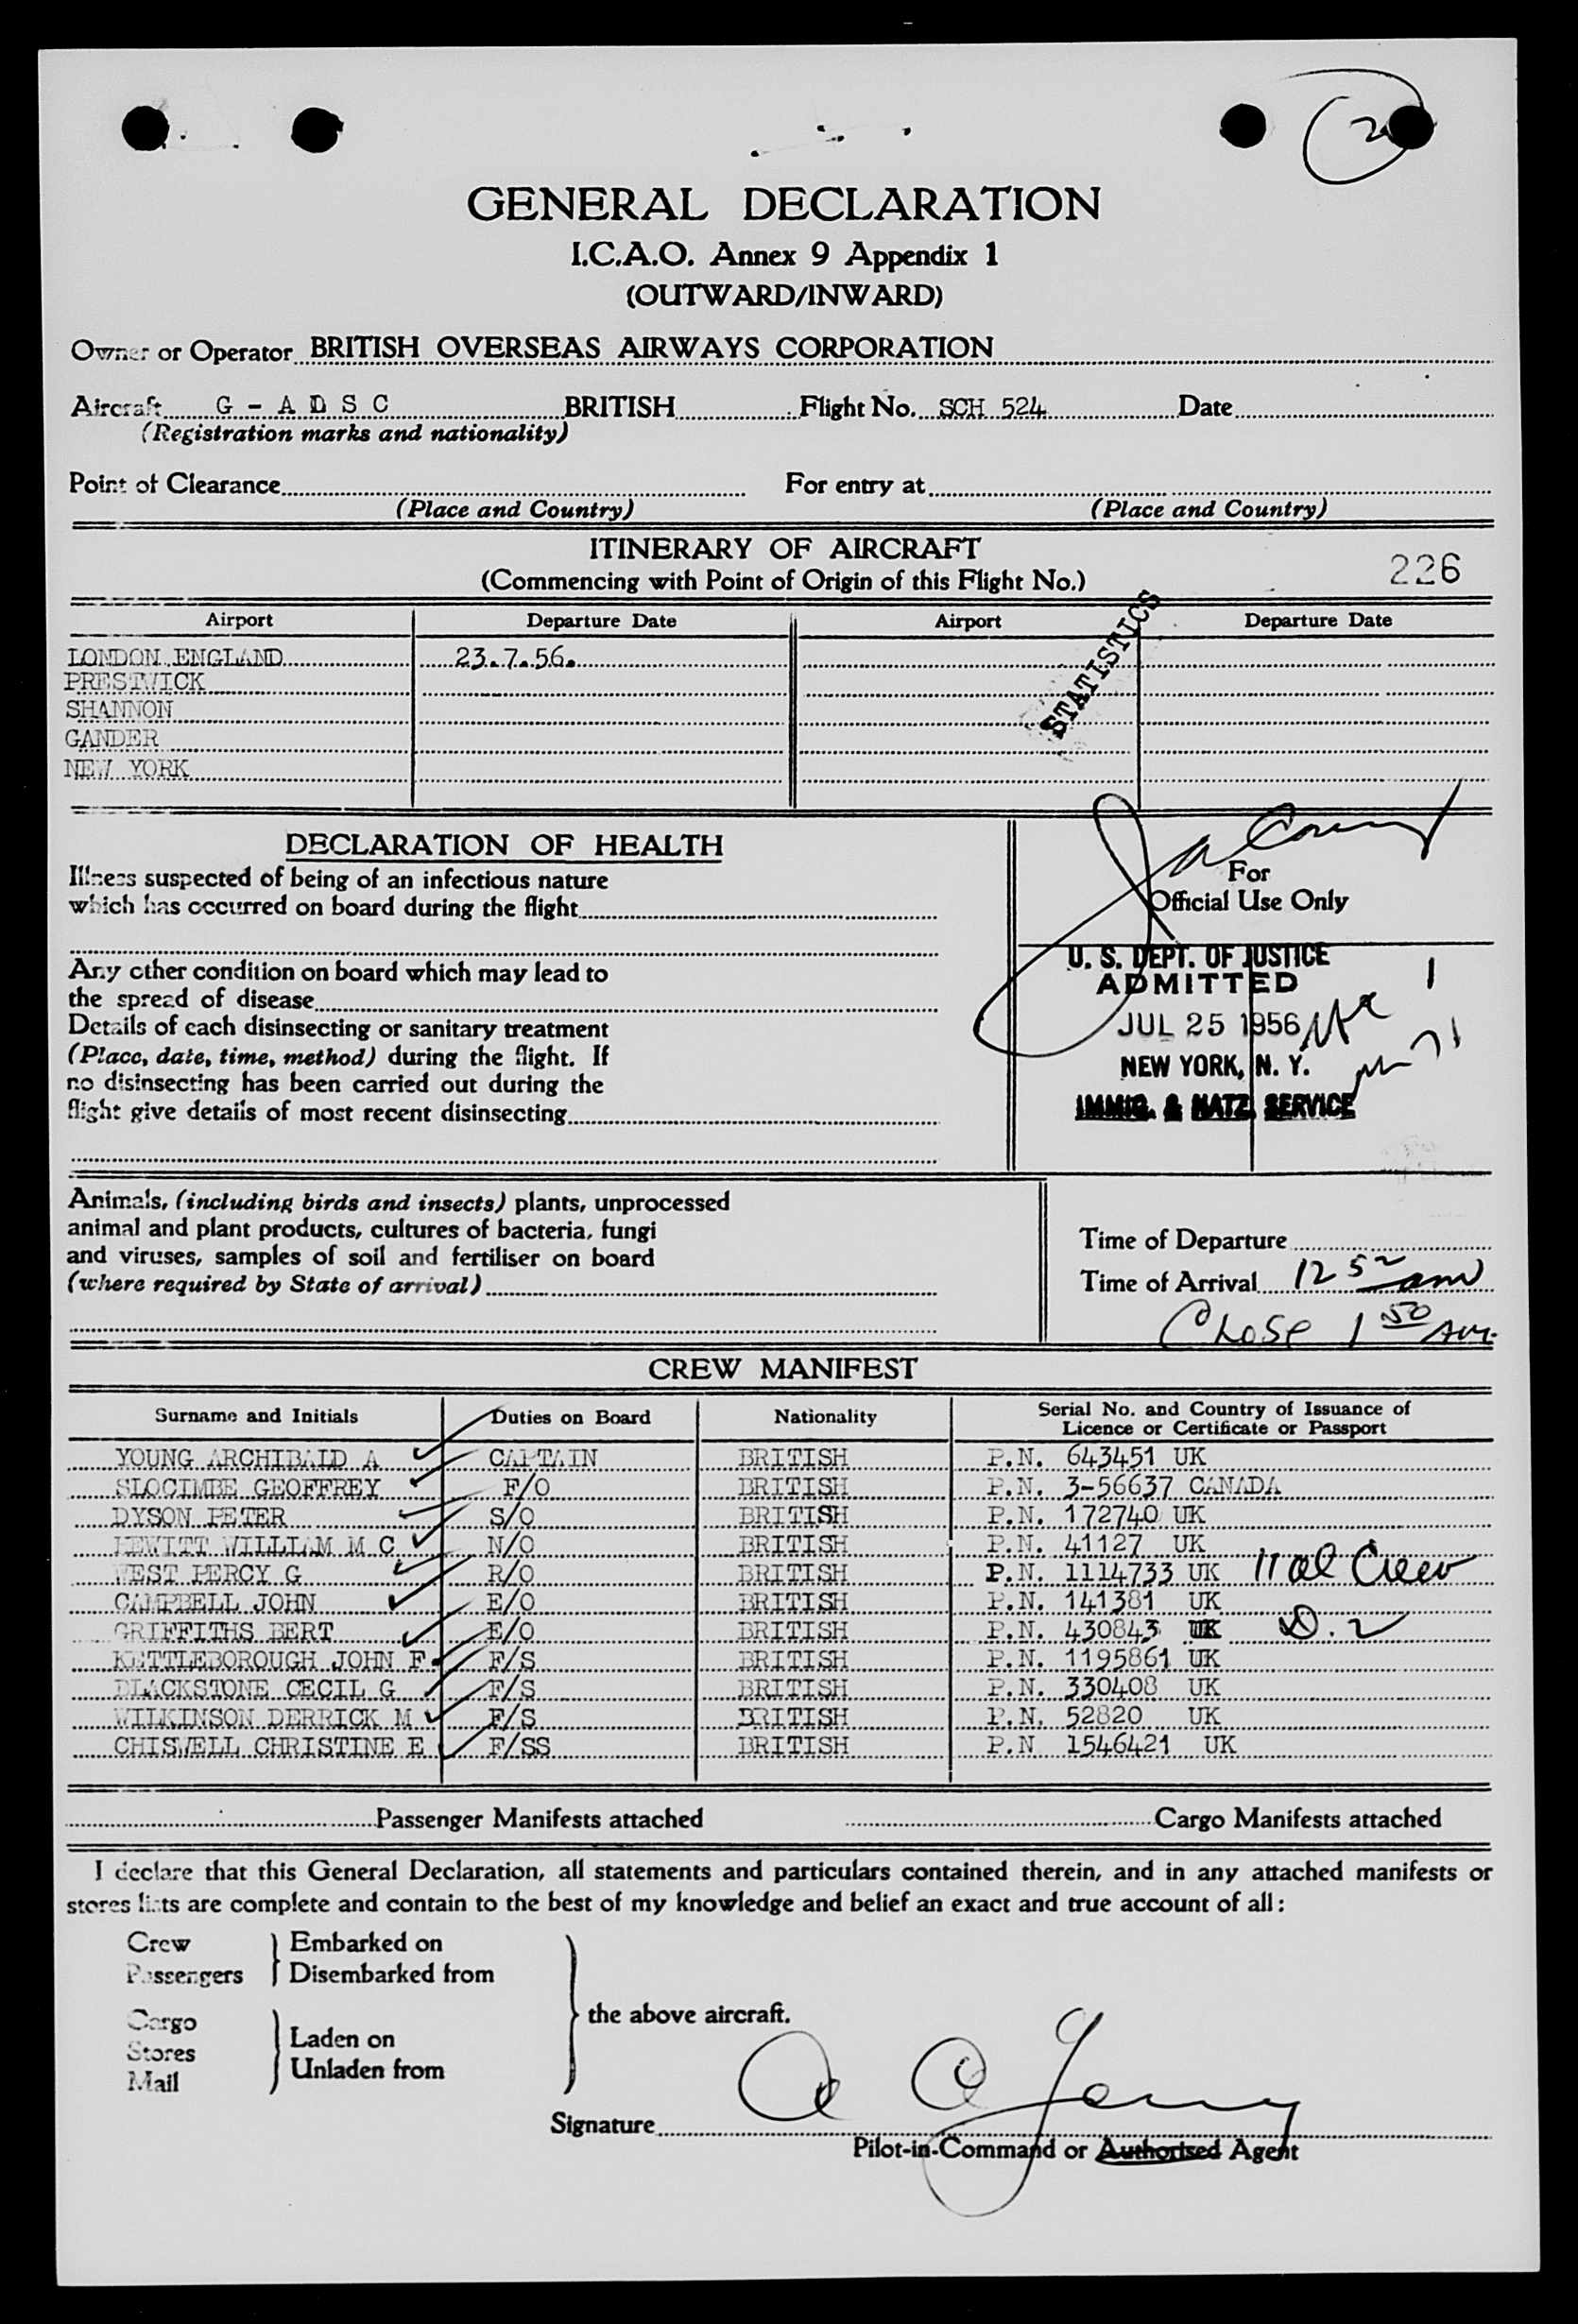 2
GENERAL DECLARATION
I.C.A.O. Annex 9 Appendix 1
(OUTWARD/INWARD)
Owner or Operator BRITISH OVERSEAS AIRWAYS CORPORATION
Aircraft G - A D S C BRITISH Flight No. SCH 524 Date
(Registration marks and nationality)
Point of Clearance For entry at
(Place and Country) (Place and Country)
ITINERARY OF AIRCRAFT
(Commencing with Point of Origin of this Flight No.) 226
Airport Departure Date Airport Departure Date
STATISTICS
LONDON ENGLAND 23.7.56.
PRESTWICK
SHANNON
GANDER
NEW YORK
DECLARATION OF HEALTH
Illness suspected of being of an infectious nature
which has occurred on board during the flight
Any other condition on board which may lead to
the spread of disease
Details of each disinsecting or sanitary treatment
(Place, date, time, method) during the flight. If
no disinsecting has been carried out during the
flight give details of most recent disinsecting
For
Official Use Only
U. S. DEPT. OF JUSTICE
ADMITTED
JUL 25 1956
NEW YORK, N. Y.
IMMIG. & NATZ. SERVICE
Animals, (including birds and insects) plants, unprocessed
animal and plant products, cultures of bacteria, fungi
and viruses, samples of soil and fertiliser on board
(where required by State of arrival)
Time of Departure
Time of Arrival 12 52 am
Close 1 50 AM.
CREW MANIFEST
Surname and Initials Duties on Board Nationality Serial No. and Country of Issuance of
Licence or Certificate or Passport
YOUNG ARCHIBALD A CAPTAIN BRITISH P.N. 643451 UK
SLOCIMBE GEOFFREY F/O BRITISH P.N. 3-56637 CANADA
DYSON PETER S/O BRITISH P.N. 172740 UK
HEWITT WILLIAM M C N/O BRITISH P.N. 41127 UK
WEST PERCY G R/O BRITISH P.N. 1114733 UK 11 al Crew
CAMPBELL JOHN E/O BRITISH P.N. 141381 UK
GRIFFITHS BERT E/O BRITISH P.N. 430843 UK D.2
KETTLEBOROUGH JOHN F. F/S BRITISH P.N. 1195861 UK
BLACKSTONE CECIL G F/S BRITISH P.N. 330408 UK
WILKINSON DERRICK M F/S BRITISH P.N. 52820 UK
CHISWELL CHRISTINE E F/SS BRITISH P.N 1546421 UK
Passenger Manifests attached Cargo Manifests attached
I declare that this General Declaration, all statements and particulars contained therein, and in any attached manifests or
stores lists are complete and contain to the best of my knowledge and belief an exact and true account of all:
Crew Embarked on
Passengers Disembarked from
the above aircraft.
Cargo
Stores Laden on
Mail Unladen from
Signature A A Young
Pilot-in-Command or Authorised Agent